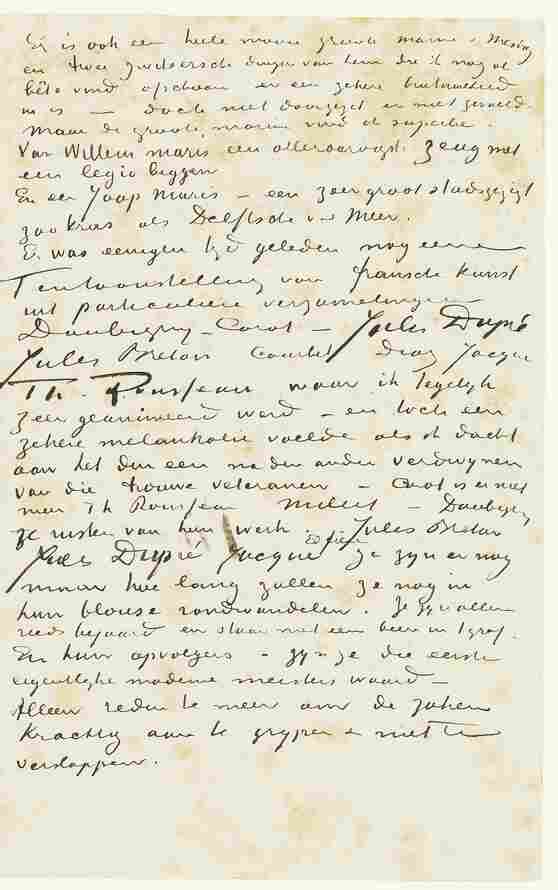 Er is ook een heele mooie groote marine v. Mesdag
en twee zwitsersche dingen van hem die ik nog al
bête vind opedaan en een zekere brutaliteid
in is — doch niet
maar de groote marine vind ik superbe.
Van Willem Maris een allercurieust zeug met
een legio biggen.
En een Jaap Maris – een zeer groot stadsgezigt
zoo kras als Delftsche v.d. Meer.
Er was eenigen tijd geleden nog eene
Tentoonstelling van fransche kunst
uit particuliere verzamelingen
Daubigny – Corot – Jules Dupré
Jules Breton Courbet Diaz Jacque
Th. Rousseau waar ik tegelijk
zeer geanimeerd werd – en toch een
zekere melankolie voelde als ik dacht
aan het den een na den ander verdwijnen
van die trouwe veteranen – Corot is er niet
meer Th Rousseau Millet – Daubigny
ze rusten van hun werk Jules Breton
Jules Dupré Jacque Ed frère ze zijn er nog
maar hoe lang zullen ze nog in
hun blouse rondwandelen. Ze zijn allen
reeds bejaard en staan met een been in 't graf.
En hun opvolgers – zijn ze die eerste
eigentlijke moderne meesters waard –
Alleen reden te meer om de zaken
krachtig aan te grijpen & niet te
verslappen.